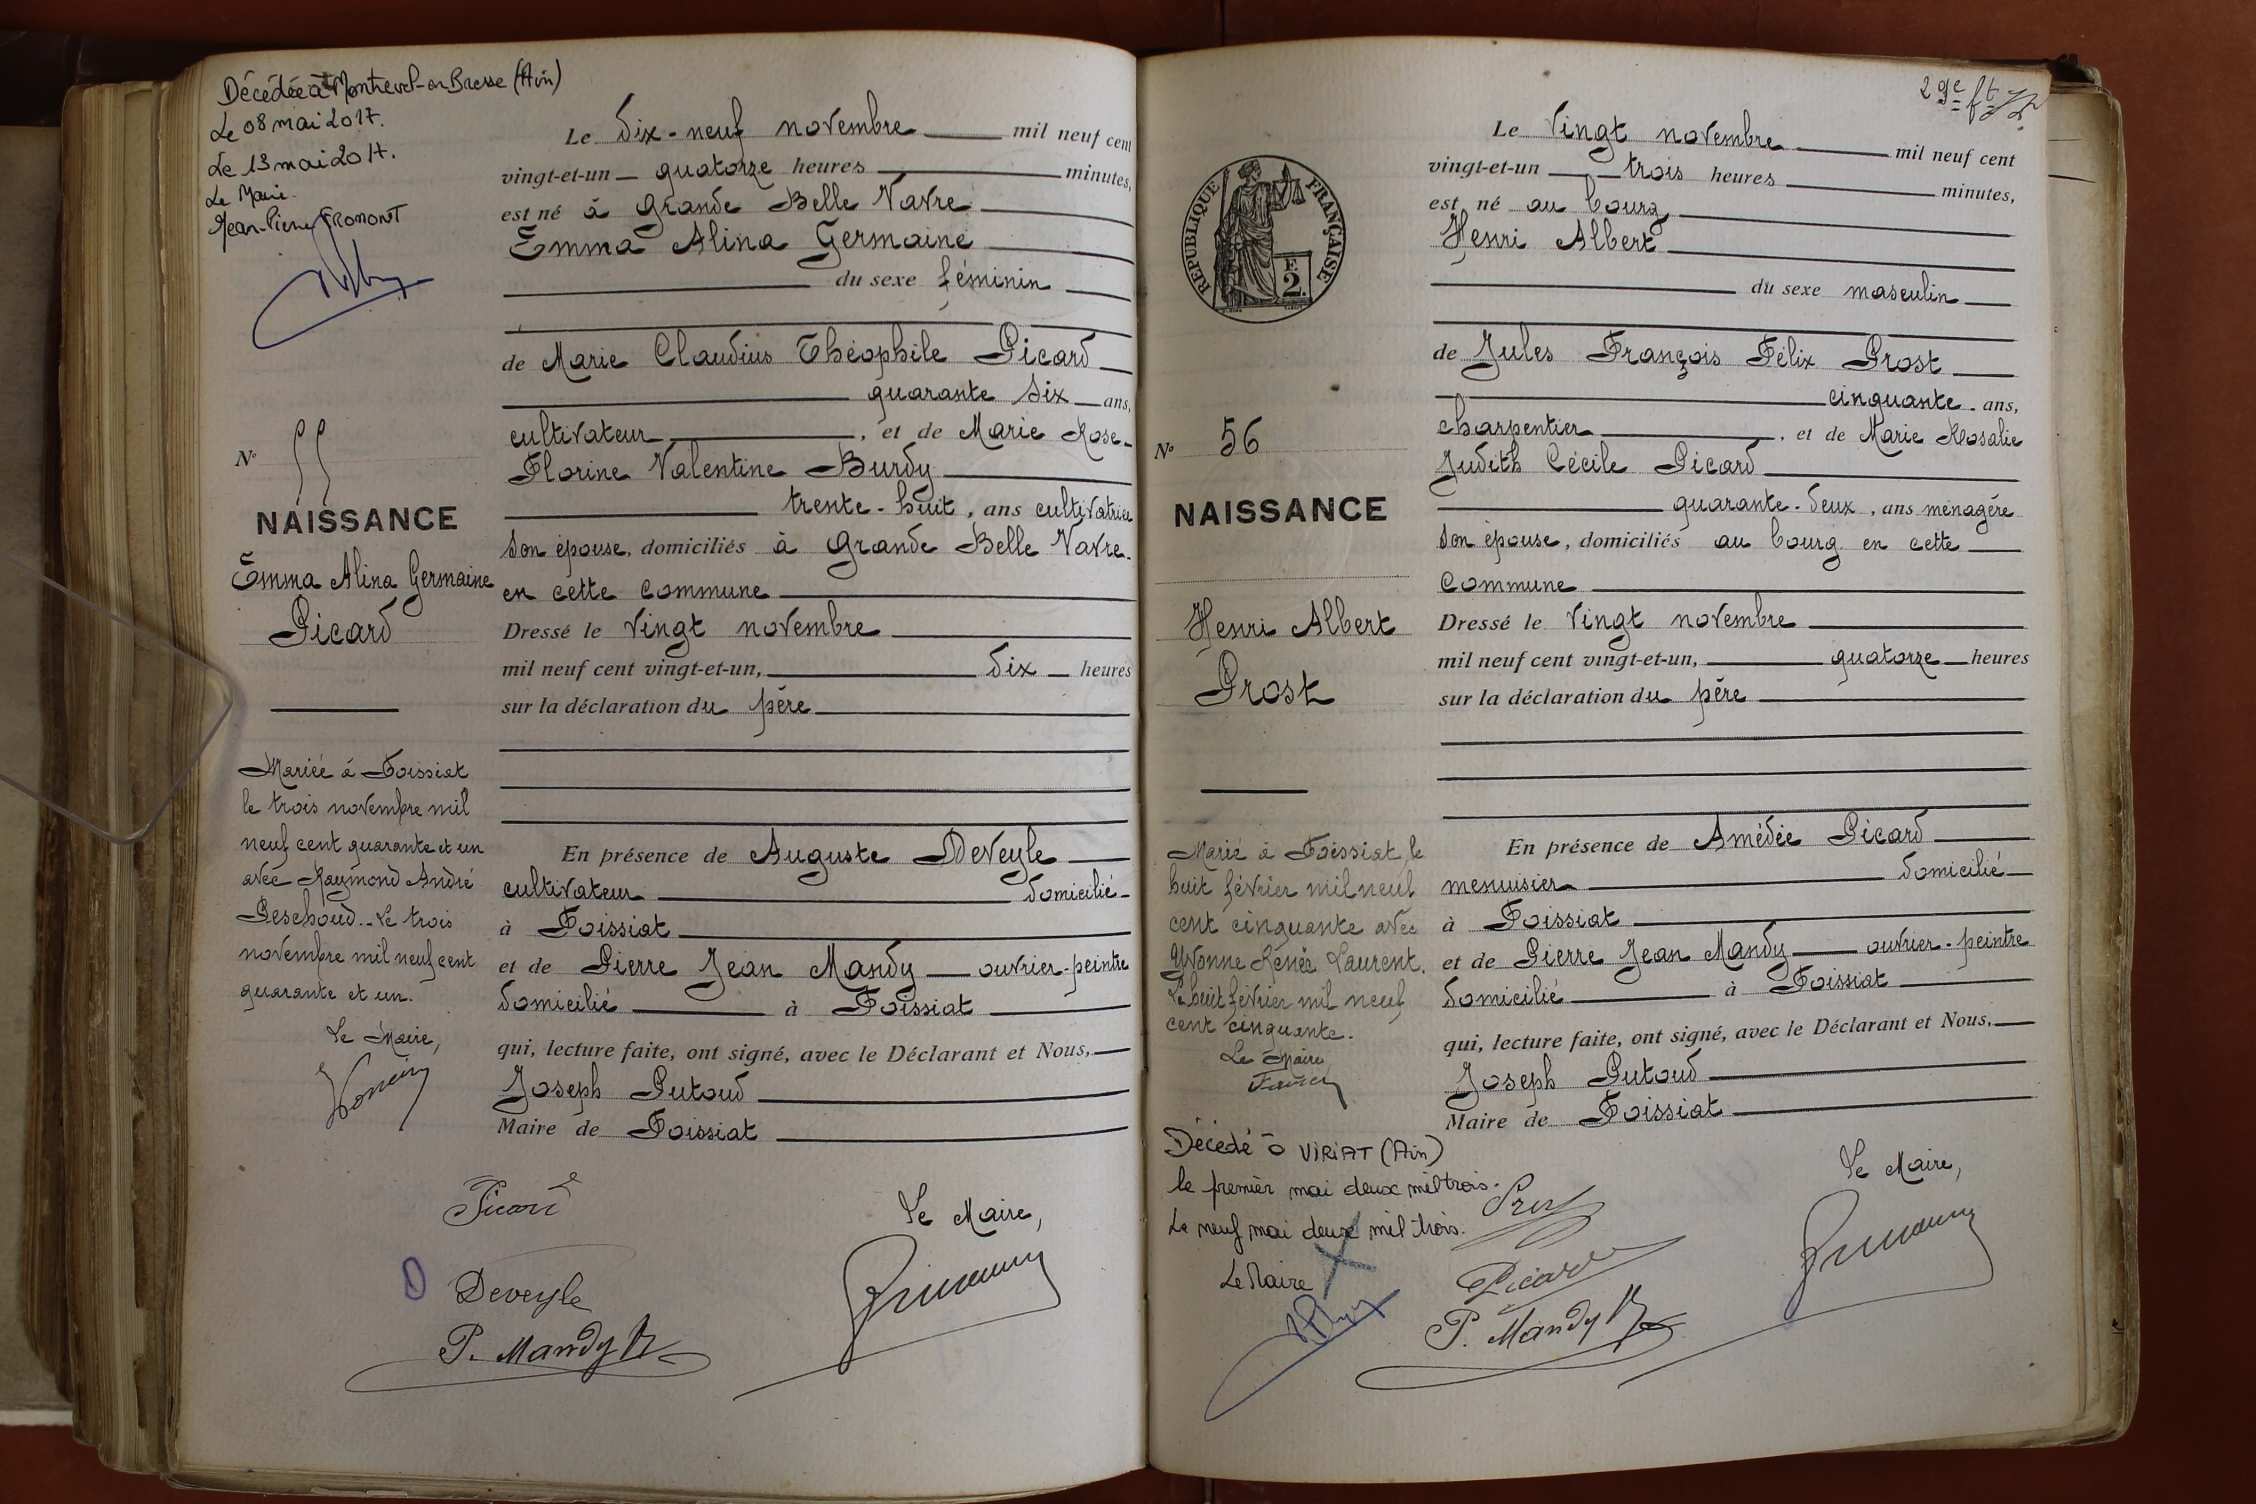 Décédée à Montrevel-en-Bresse (Ain)
Le 08 mai 2017.
Le 13 mai 2017.
Le Maire.
Jean-Pierre FROMONT
N° 55
NAISSANCE
Emma Alina Germaine
Picard
Mariée à Foissiat
le trois novembre mil
neuf cent quarante et un
avec Raymond André
Peschoud. _ Le trois
novembre mil neuf cent
quarante et un.
Le Maire,
Le dix-neuf novembre mil neuf cent
vingt-et-un quatorze heures minutes,
est né à Grande Belle Vavre
Emma Alina Germaine
du sexe féminin
de Marie Claudius Théophile Picard
quarante six ans,
cultivateur, et de Marie Rose
Florine Valentine Burdy
trente-huit, ans cultivatrice
son épouse, domiciliés à Grande Belle Vavre
en cette commune
Dressé le vingt novembre
mil neuf cent vingt-et-un, dix heures
sur la déclaration du père
En présence de Auguste Deveyle
cultivateur domicilié
à Foissiat
et de Pierre Jean Mandy ouvrier-peintre
domicilié à Foissiat
qui, lecture faite, ont signé, avec le Déclarant et Nous,
Joseph Putoud
Maire de Foissiat
Picard
Le Maire,
Deveyle
P. Mandy
2 9e ft
RÉPUBLIQUE FRANÇAISE
F.
2.
N° 56
NAISSANCE
Henri Albert
Prost
Marié à Foissiat, le
huit février mil neuf
cent cinquante avec
Yvonne Renée Laurent.
Le huit février mil neuf
cent cinquante.
Le Maire
Décédé à VIRIAT (Ain)
le premier mai deux mil trois.
Le neuf mai deux mil trois.
Le Maire
Le vingt novembre mil neuf cent
vingt-et-un trois heures minutes,
est né au bourg
Henri Albert
du sexe masculin
de Jules François Félix Prost
cinquante ans,
charpentier, et de Marie Rosalie
Judith Cécile Picard
quarante-deux, ans ménagère
son épouse, domiciliés au bourg en cette
commune
Dressé le vingt novembre
mil neuf cent vingt-et-un, quatorze heures
sur la déclaration du père
En présence de Amédée Picard
menuisier domicilié
à Foissiat
et de Pierre Jean Mandy ouvrier-peintre
domicilié à Foissiat
qui, lecture faite, ont signé, avec le Déclarant et Nous,
Joseph Putoud
Maire de Foissiat
Le Maire,
Prost
Picard
P. Mandy